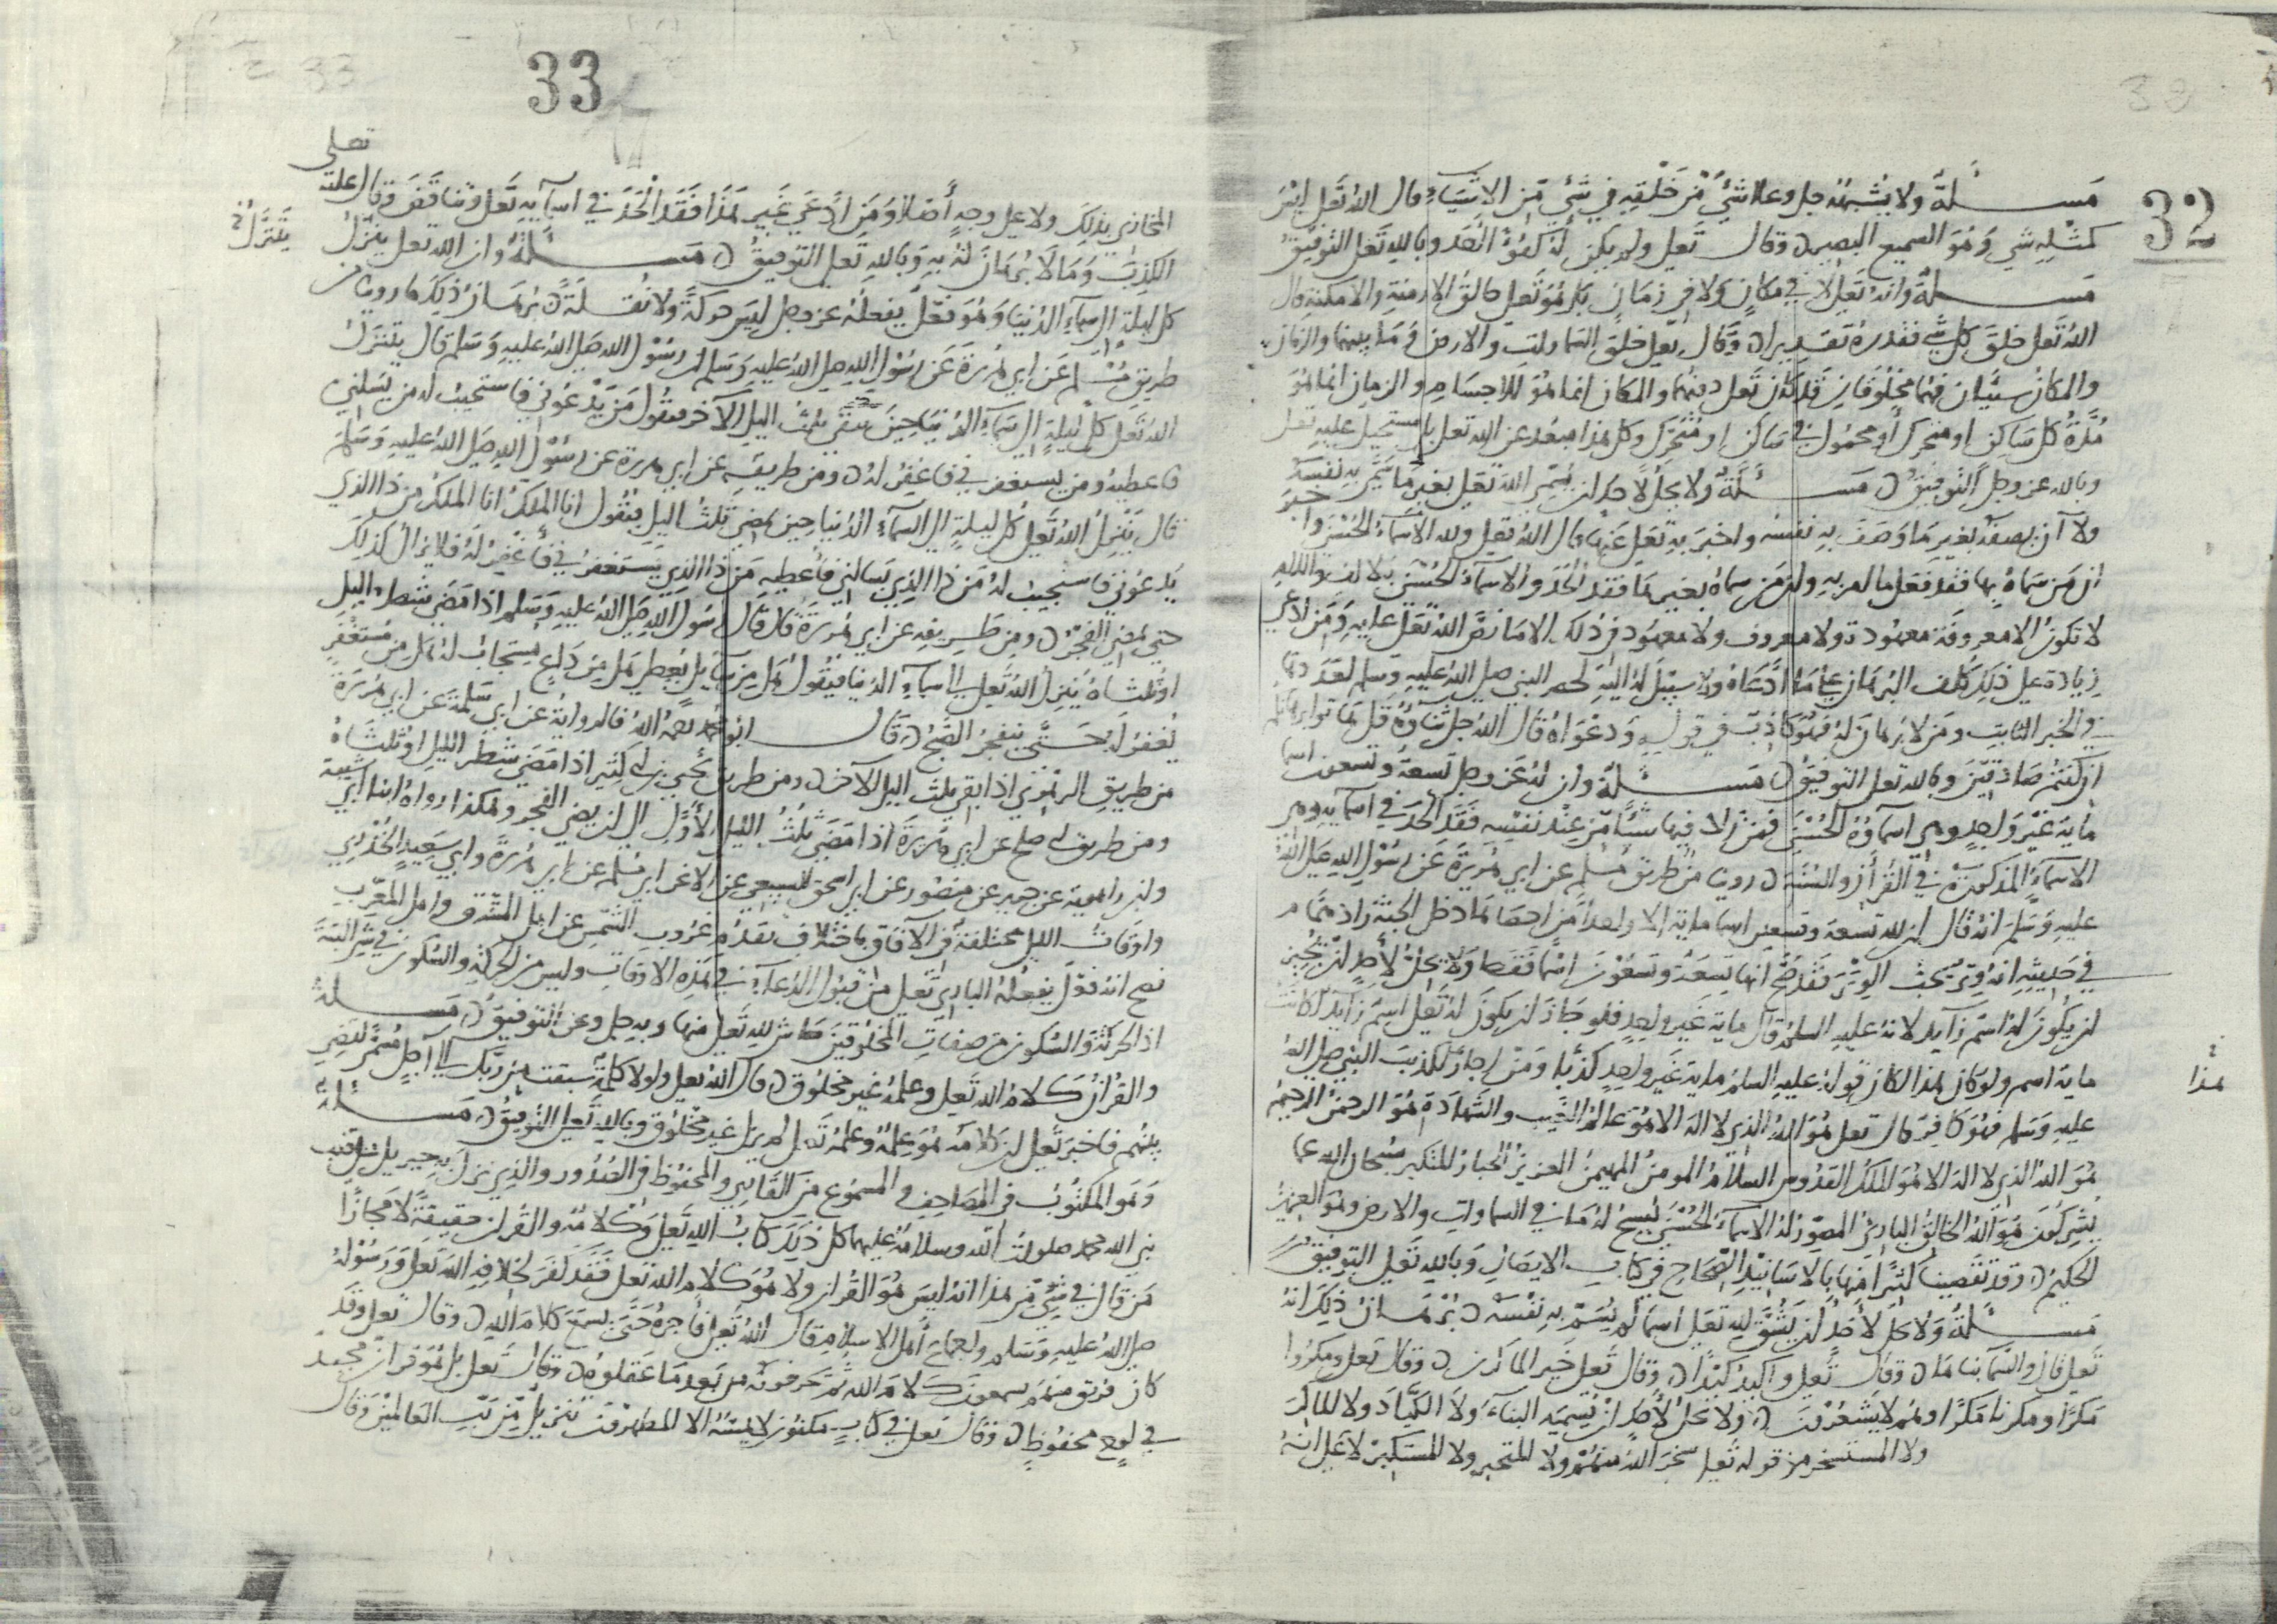 32
مسألة ولا يشبهه جل وعلا شيء من خلقه في شيء من الاشياء قال الله تعلى ليس
كمثله شي وهو السميع البصير وقال تعلى ولم يكن له كفؤا احد وبالله تعلى التوفيق
مسألة وانه تعلى لا في مكان ولا في زمان بل هو تعلى خالق الازمنة والامكنة قال
الله تعلى خلق كل شي فقدره تقديرا وقال تعلى خلق السماوات والارض وما بينهما والزمان
والمكان شيئان فهما مخلوقان قد كان تعلى دونهما والمكان انما هو للاجسام والزمان انما هو
مدة كل ساكن او متحرك او محمول في ساكن او متحرك وكل هذا مبعد عن الله تعلى بل مستحيل عليه تعلى
وبالله عز وجل التوفيق مسألة ولا يحل لاحد ان يسمي الله تعلى بغير ما سمى به نفسه
ولا ان يصفه بغير ما وصف به نفسه واخبر به تعلى عنها قال الله تعلى ولله الاسماء الحسنى
ان من سماه بها فقد فعل ما امر به وان من سماه بغيرها فقد الحد والاسماء الحسنى بالالف واللام
لا تكون الا معروفة معهودة ولا معروف ولا معهود في ذلك الا ما نص الله تعلى عليه ومن ادعى
زيادة على ذلك كلف البرهان على ما ادعاه ولا سبيل له اليه
والخبر الثابت ومن لا برهان له فهو كاذب في قوله ودعواه قال الله جل ثناؤه قل هاتوا برهانكم
ان كنتم صادقين وبالله تعلى التوفيق مسألة وان له عز وجل تسعة وتسعون اسما
ماية غير واحد وهي اسماؤه الحسنى فمن زاد فيها شيئا من عند نفسه فقد الحد في اسمايه وهي
الاسماء المذكورة في القرآن والسنة روينا من طريق مسلم عن ابي هريرة عن رسول الله صلى الله
عليه وسلم انه قال ان لله تسعة وتسعين اسما ماية الا واحدا من احصاها دخل الجنة زاد همام
في حديثه انه وتر يحب الوتر فقد صح انها تسعة وتسعون اسما فقط ولا يحل لأحد ان يجيز
ان يكون له اسم زايد لانه عليه السلم قال ماية غير واحد فلو جاز ان يكون له تعلى اسم زايد لكانت
ماية اسم ولو كان هذا لكان قوله عليه السلم ماية غير واحد كذبا ومن اجاز تكذيب النبي صلى الله
هذا
عليه وسلم فهو كافر قال تعلى هو الله الذي لا اله الا هو عالم الغيب والشهادة هو الرحمن الرحيم
هو الله الذي لا اله الا هو الملك القدوس السلام المومن المهيمن العزيز الجبار المتكبر سبحان الله عما
يشركون هو الله الخالق البارئ المصور له الاسماء الحسنى يسبح له ما في السماوات والارض وهو العزيز
الحكيم وقد تقصينا كثيرا منها بالاسانيد الصحاح في كتاب الايصال وبالله تعلى التوفيق
مسألة ولا يحل لاحد ان يشتق لله تعلى اسما لم يسم به نفسه برهان ذلك انه
تعلى قال والسماء بناها وقال تعلى واكيد كيدا وقال تعلى خير الماكرين وقال تعلى ومكروا
مكرا ومكرنا مكرا وهم لا يشعرون ولا يحل لأحد ان يسميه البناء ولا الكياد ولا الماكر
ولا المستسخر من قوله تعلى سخر الله منهم ولا المتجبر ولا المستكبر لا على انه
33
تعلى
المجازي بذلك ولا على وجه أصلا ومن ادعى غير هذا فقد الحد في اسمايه تعلى وتناقض وقال على الله
الكذب وما لا برهان له به وبالله تعلى التوفيق مسألة وان الله تعلى ينزل
يتنزل
كل ليلة الى سماء الدنيا وهو فعل يفعله عز وجل ليس حركة ولا نقلة برهان ذلك ما روينا من
طريق مسلم عن ابي هريرة عن رسول الله صلى الله عليه وسلم ان رسول الله صلى الله عليه وسلم قال يتنزل
الله تعلى كل ليلة الى السماء الدنيا حين يبقى ثلث اليل الآخر فيقول من يدعوني فاستجيب له من يسلني
فاعطيه ومن يستغفرني فاغفر له ومن طريقه عن ابي هريرة عن رسول الله صلى الله عليه وسلم
قال ينزل الله تعلى كل ليلة الى السماء الدنيا حين يمضي ثلث اليل فيقول انا الملك انا الملك من ذا الذي
يدعوني فاستجيب له من ذا الذي يسالني فاعطيه من ذا الذي يستغفرني فاغفر له فلا يزال كذلك
حتى يضيء الفجر ومن طريقه عن ابي هريرة قال قال رسول الله صلى الله عليه وسلم اذا مضى شطر اليل
او ثلثاه ينزل الله تعلى الى سماء الدنيا فيقول هل من سايل يعطى هل من داع يستجاب له هل من مستغفر
يغفر له حتى ينفجر الصبح قال ابو محمد رحمه الله فالرواية عن ابي سلمة عن ابي هريرة
من طريق الزهري اذا بقي ثلث اليل الآخر ومن طريق يحيى بن ابي كثير اذا مضى شطر الليل او ثلثاه
ومن طريق ابي صالح عن ابي هريرة اذا مضى ثلث الليل الأول الى ان يضي الفجر وهكذا رواه ابنا ابي شيبة
وابن راهويه عن جرير عن منصور عن ابي اسحق السبيعي عن الاغر ابي مسلم عن ابي هريرة وابي سعيد الخدري
واوقات الليل مختلفة في الآفاق باختلاف تقدم غروب الشمس عن اهل المشرق واهل المغرب
فصح انه فعل يفعله الباري تعلى من قبول الدعاء في هذه الاوقات وليس من الحركة والسكون في شي البتة
اذ الحركة والسكون من صفات المخلوقين حاش لله تعلى منها وبه جل وعز التوفيق مسألة
والقرآن كلام الله تعلى وعلمه غير مخلوق قال الله تعلى ولولا كلمة سبقت من ربك الى اجل مسمى لقضي
بينهم فاخبر تعلى ان كلامه هو علمه وعلمه تعلى لم يزل غير مخلوق وبالله تعلى التوفيق مسألة
وهو المكتوب في المصاحف والمسموع من القاري والمحفوظ في الصدور والذي نزل به جبريل على قلب
نبي الله محمد صلوات الله وسلامه عليهما كل ذلك كتاب الله تعلى وكلامه والقرآن حقيقة لا مجازا
من قال في شيء من هذا انه ليس هو القرآن ولا هو كلام الله تعلى فقد كفر لخلافه الله تعلى ورسوله
صلى الله عليه وسلم واجماع اهل الاسلام قال الله تعلى فأجره حتى يسمع كلام الله وقال تعلى وقد
كان فريق منهم يسمعون كلام الله ثم يحرفونه من بعد ما عقلوه وقال تعلى بل هو قرآن مجيد
في لوح محفوظ وقال تعلى في كتاب مكنون لا يمسه الا المطهرون تنزيل من رب العالمين وقال